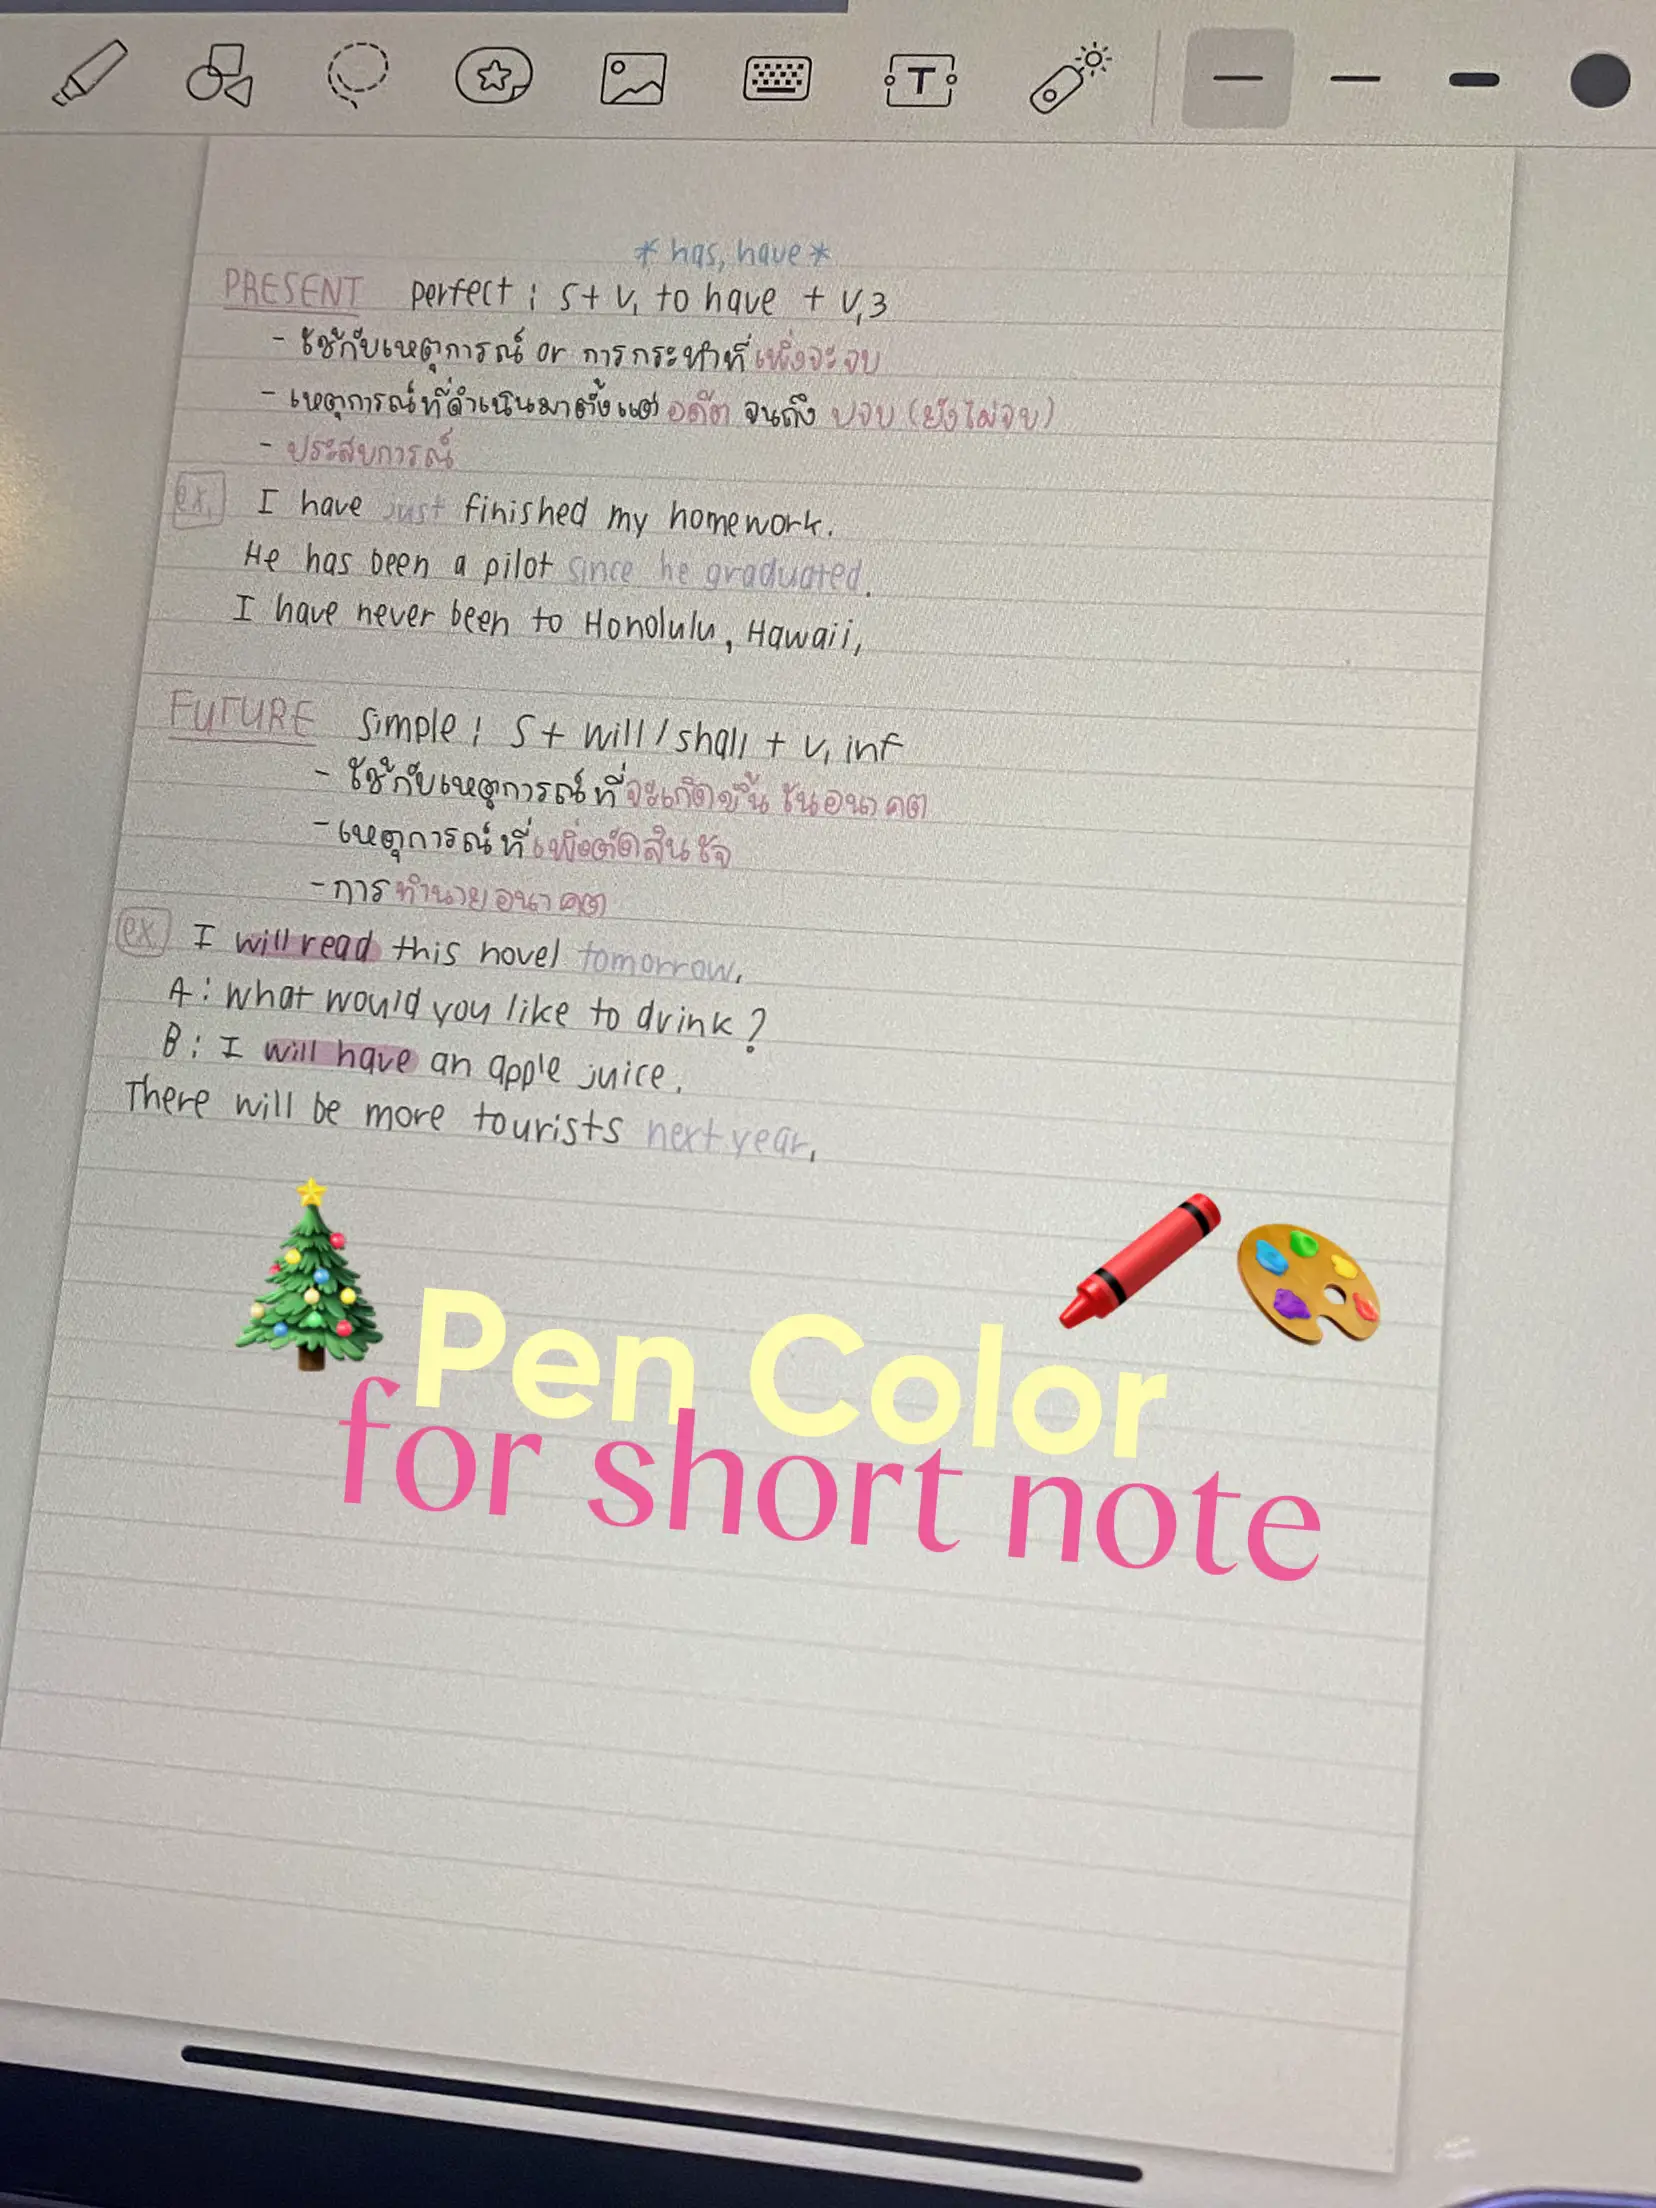 T
*has, have*
PRESENT perfect : S + V, to have + V,3
- ใช้กับเหตุการณ์ or การกระทำที่เพิ่งจะจบ
- เหตุการณ์ที่ดำเนินมาตั้งแต่ อดีต จนถึง ปจบ (ยังไม่จบ)
- ประสบการณ์
ex. I have just finished my homework.
He has been a pilot since he graduated.
I have never been to Honolulu, Hawaii,
FUTURE simple : S + will / shall + V, inf
- ใช้กับเหตุการณ์ที่จะเกิดขึ้นในอนาคต
- เหตุการณ์ที่เพิ่งตัดสินใจ
- การทำนายอนาคต
ex. I will read this novel tomorrow,
A : What would you like to drink ?
B : I will have an apple juice.
There will be more tourists next year,
Pen Color
for short note